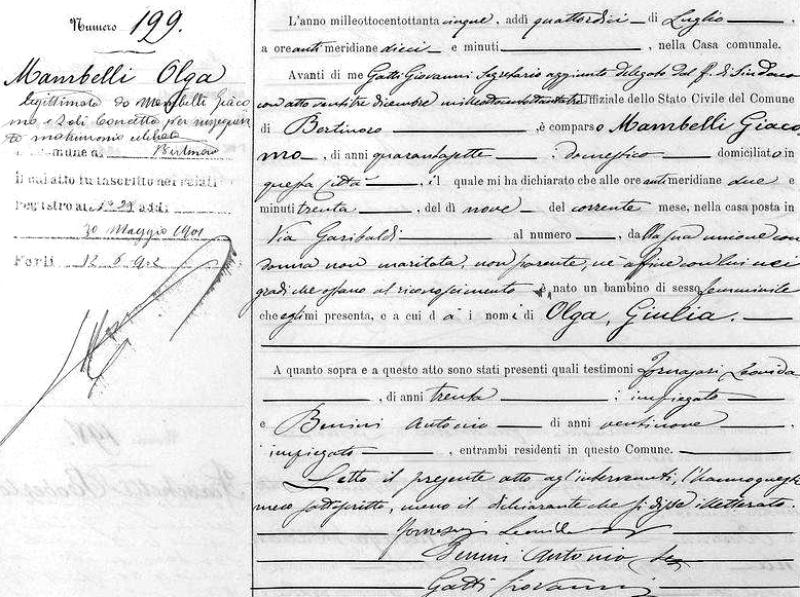 Numero 199.
Mambelli Olga
legittimata da Mambelli Giaco
mo e Zoli Concetta per susseguen
te matrimonio celebrato
Comune a Bertinoro
il cui atto fu inscritto nei relati
registro al N° 29 add.
30 Maggio 1901
Forlì 12 6 902
L'anno milleottocentottanta cinque, addì quattordici di Luglio
a ore anti meridiane dieci e minuti , nella Casa comunale.
Avanti di me Gatti Giovanni Segretario aggiunto delegato dal ff. di Sindaco
con atto ventitre dicembre milleottocentottantatre Uffiziale dello Stato Civile del Comune
di Bertinoro , è comparso Mambelli Giaco
mo, di anni quarantasette , domestico domiciliato in
questa Città , il quale mi ha dichiarato che alle ore anti meridiane due e
minuti trenta , del dì nove del corrente mese, nella casa posta in
Via Garibaldi al numero , dalla sua unione con
donna non maritata, non parente, nè affine con lui nei
gradi che ostano al riconoscimento è nato un bambino di sesso femminile
che egli mi presenta, e a cui dà i nomi di Olga, Giulia.
A quanto sopra e a questo atto sono stati presenti quali testimoni Fornasari Leonida
, di anni trenta , impiegato
e Benini Antonio di anni ventinove
, impiegato , entrambi residenti in questo Comune.
Letto il presente atto agl'intervenuti, l'hanno questi
meco sottoscritto, meno il dichiarante che si disse illetterato.
Fornasari Leonida
Benini Antonio
Gatti Giovanni